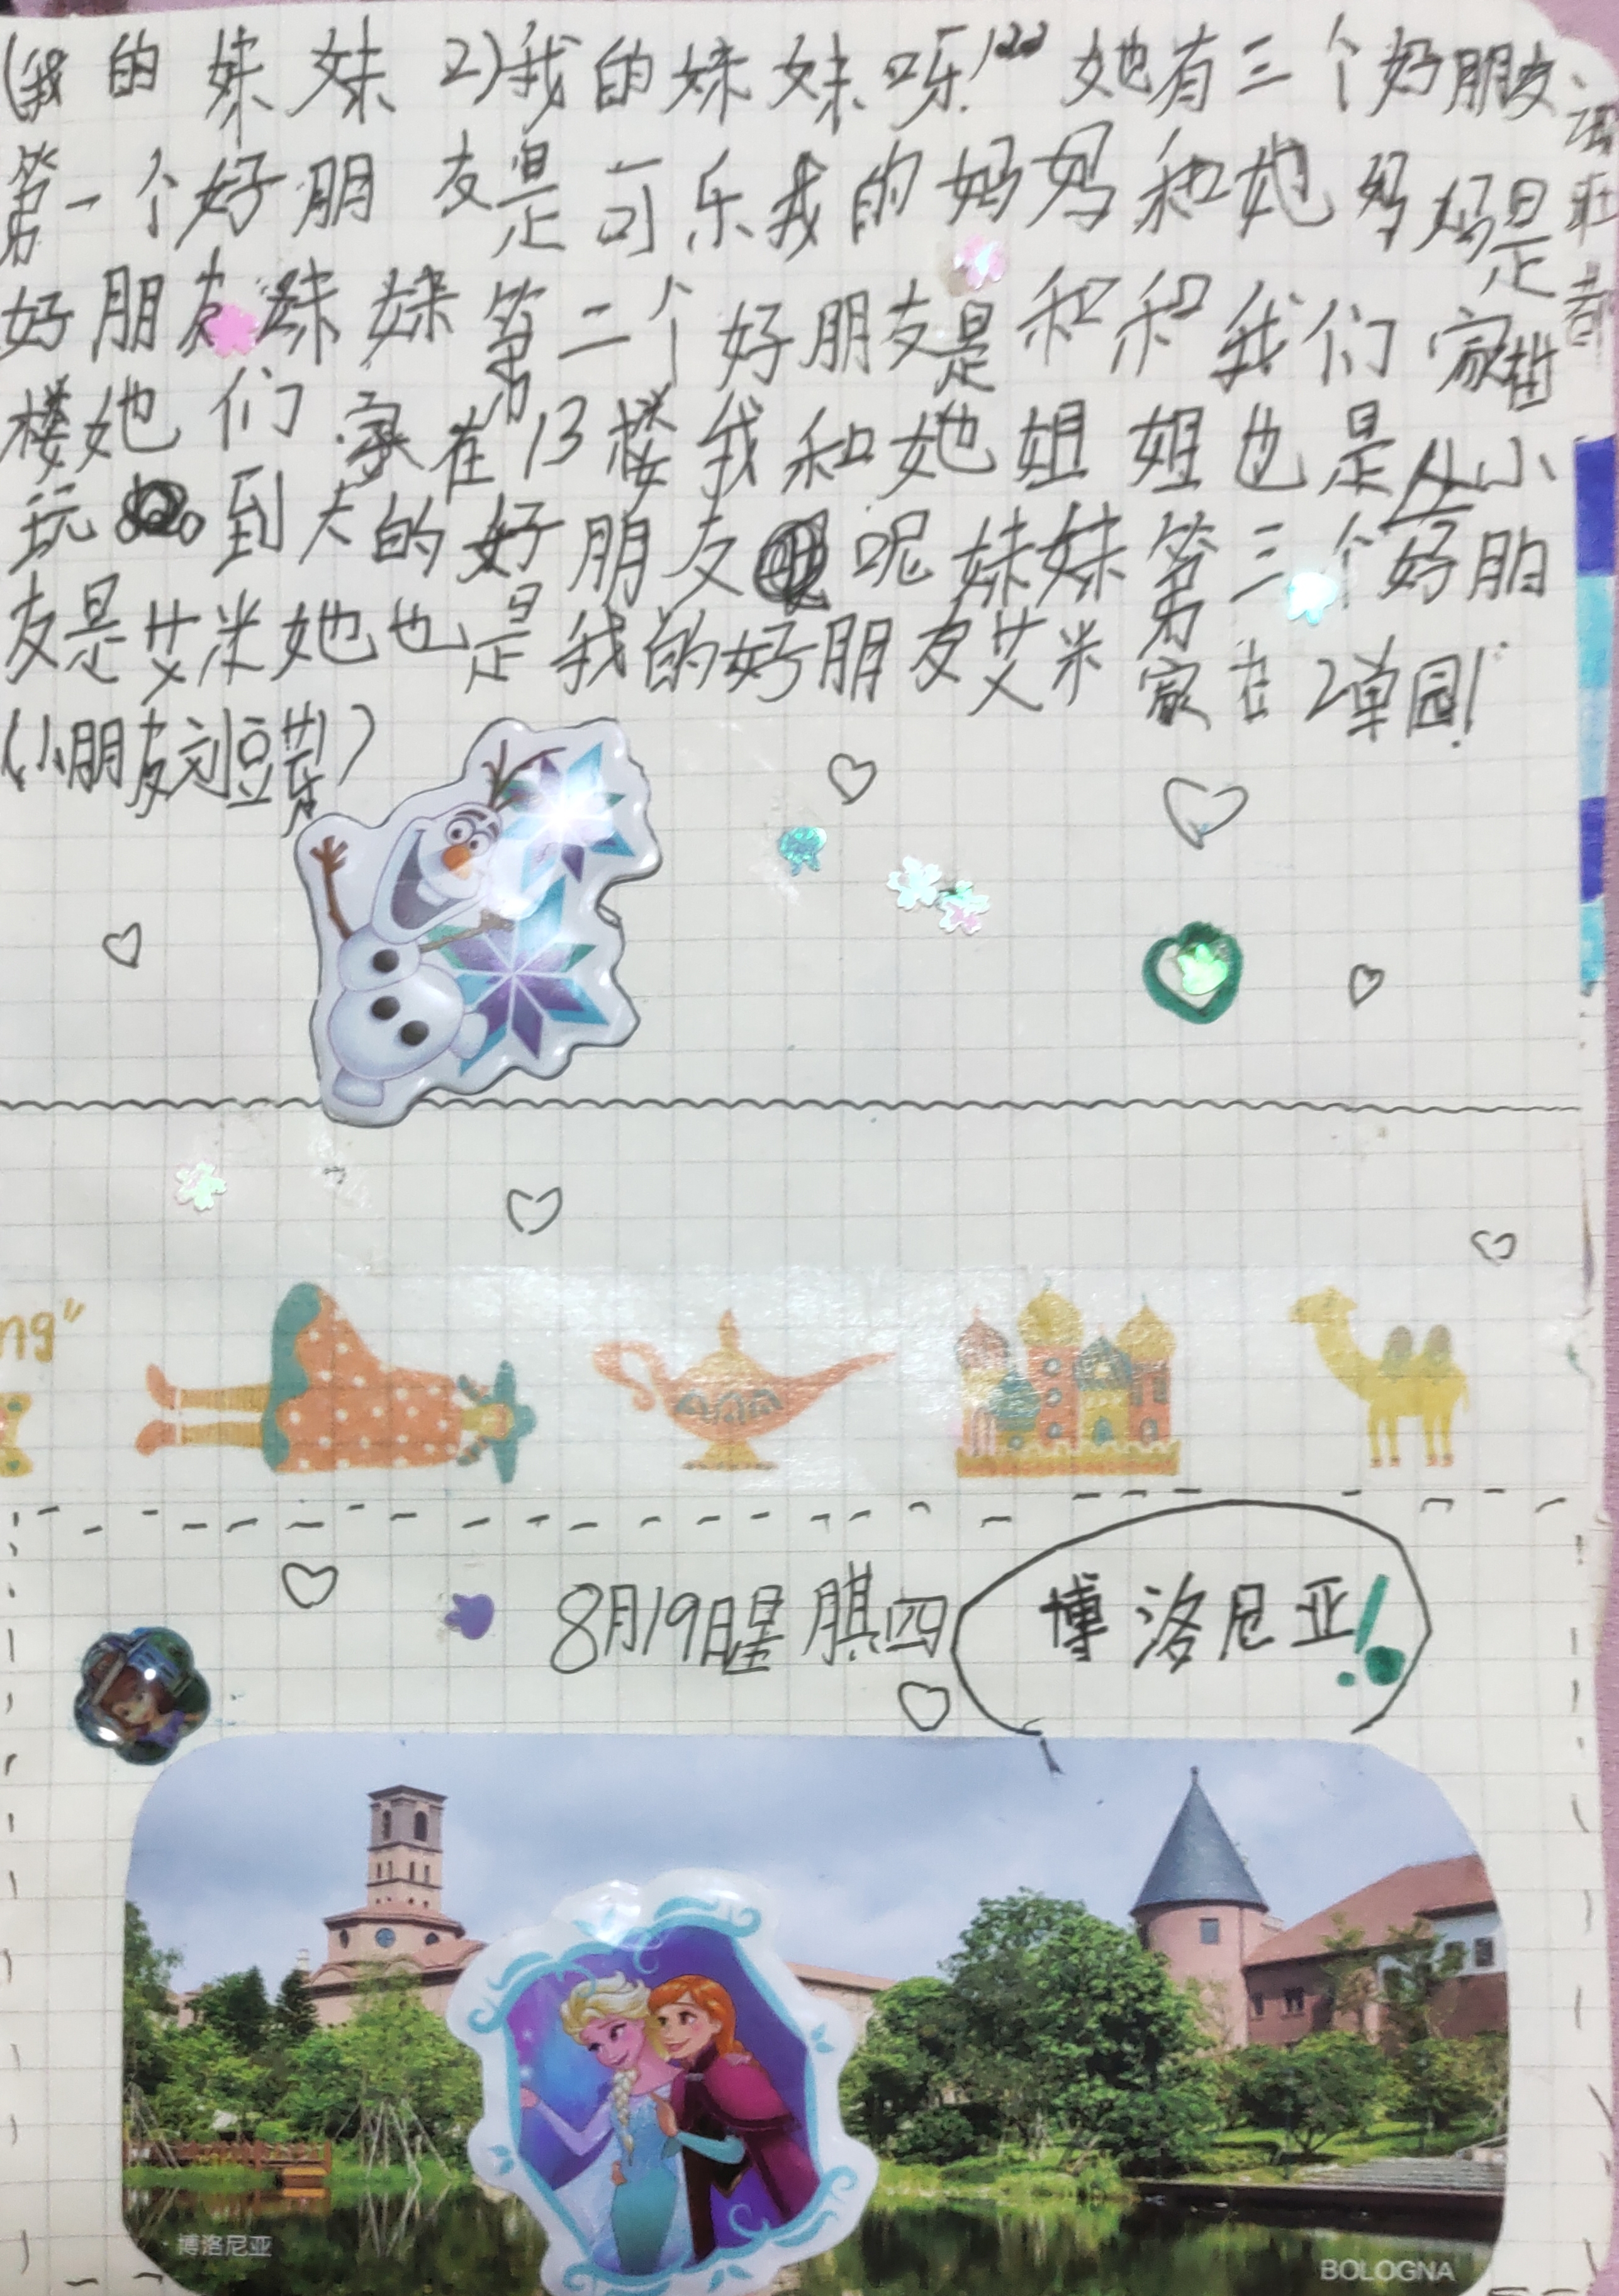 (我的妹妹2)我的妹妹呀!她有三个好朋友、
第一个好朋友是可乐我的妈妈和她妈妈是
好朋友妹妹第二个好朋友是和和我们家
楼她们家在13楼我和她姐姐也是从小
玩到大的好朋友呢妹妹第三个好朋
友是艾米她也是我的好朋友艾米家在2单园!
(小朋友刘豆芽)
ng"
8月19日星期四
博洛尼亚!
博洛尼亚
BOLOGNA